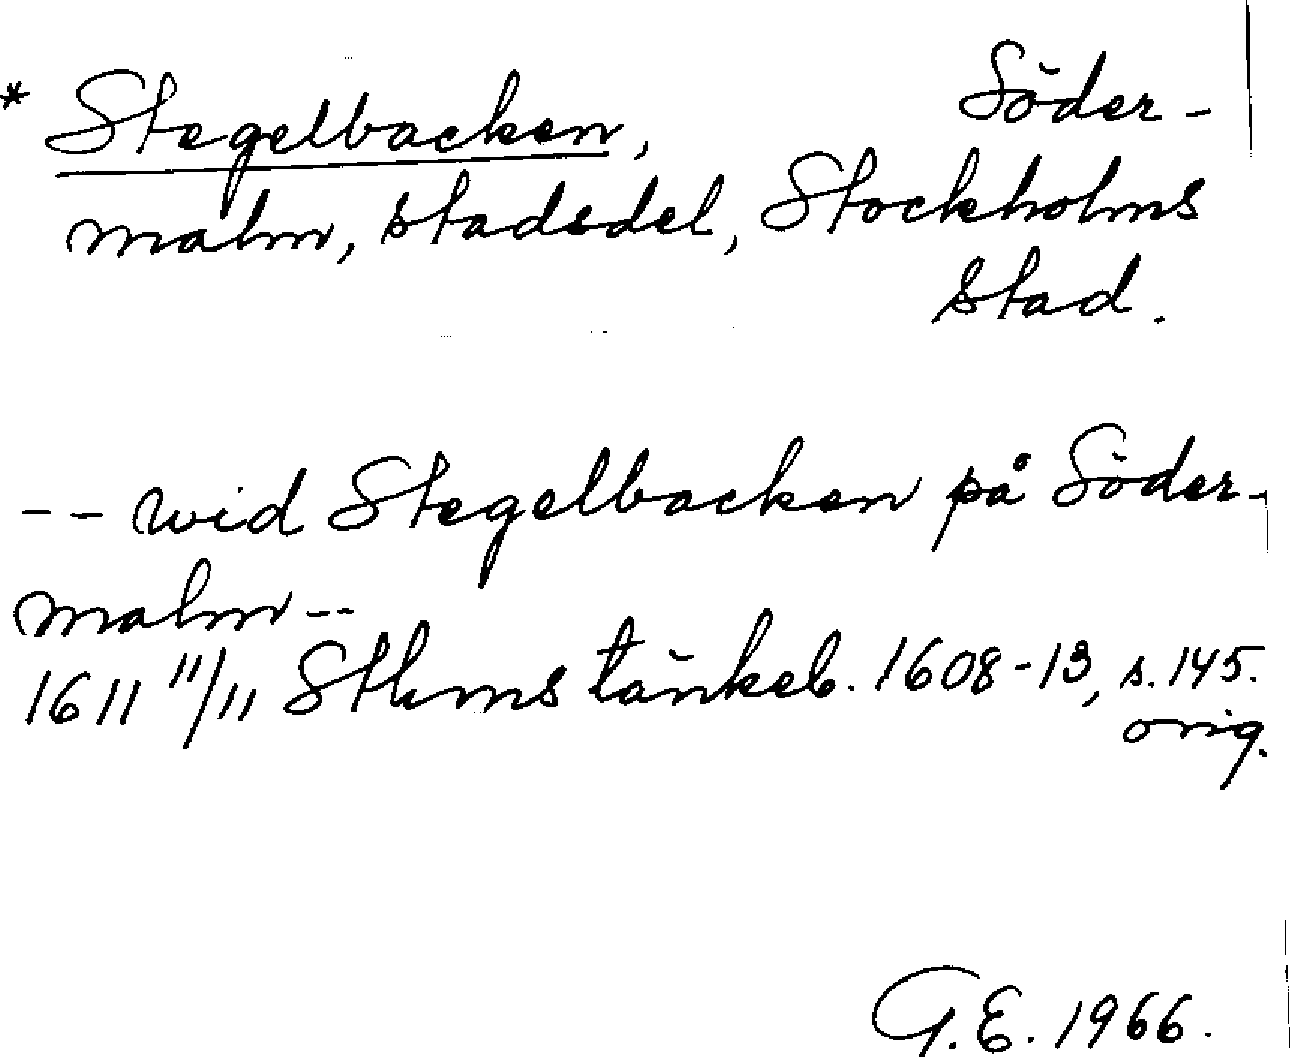 * Stegelbacken, Söder-
malm, stadsdel, Stockholms
stad.
-- wid Stegelbacken på Söder-
malm --
1611 11/11 Sthms tänkeb. 1608-13, s. 145.
orig.
G.E. 1966.